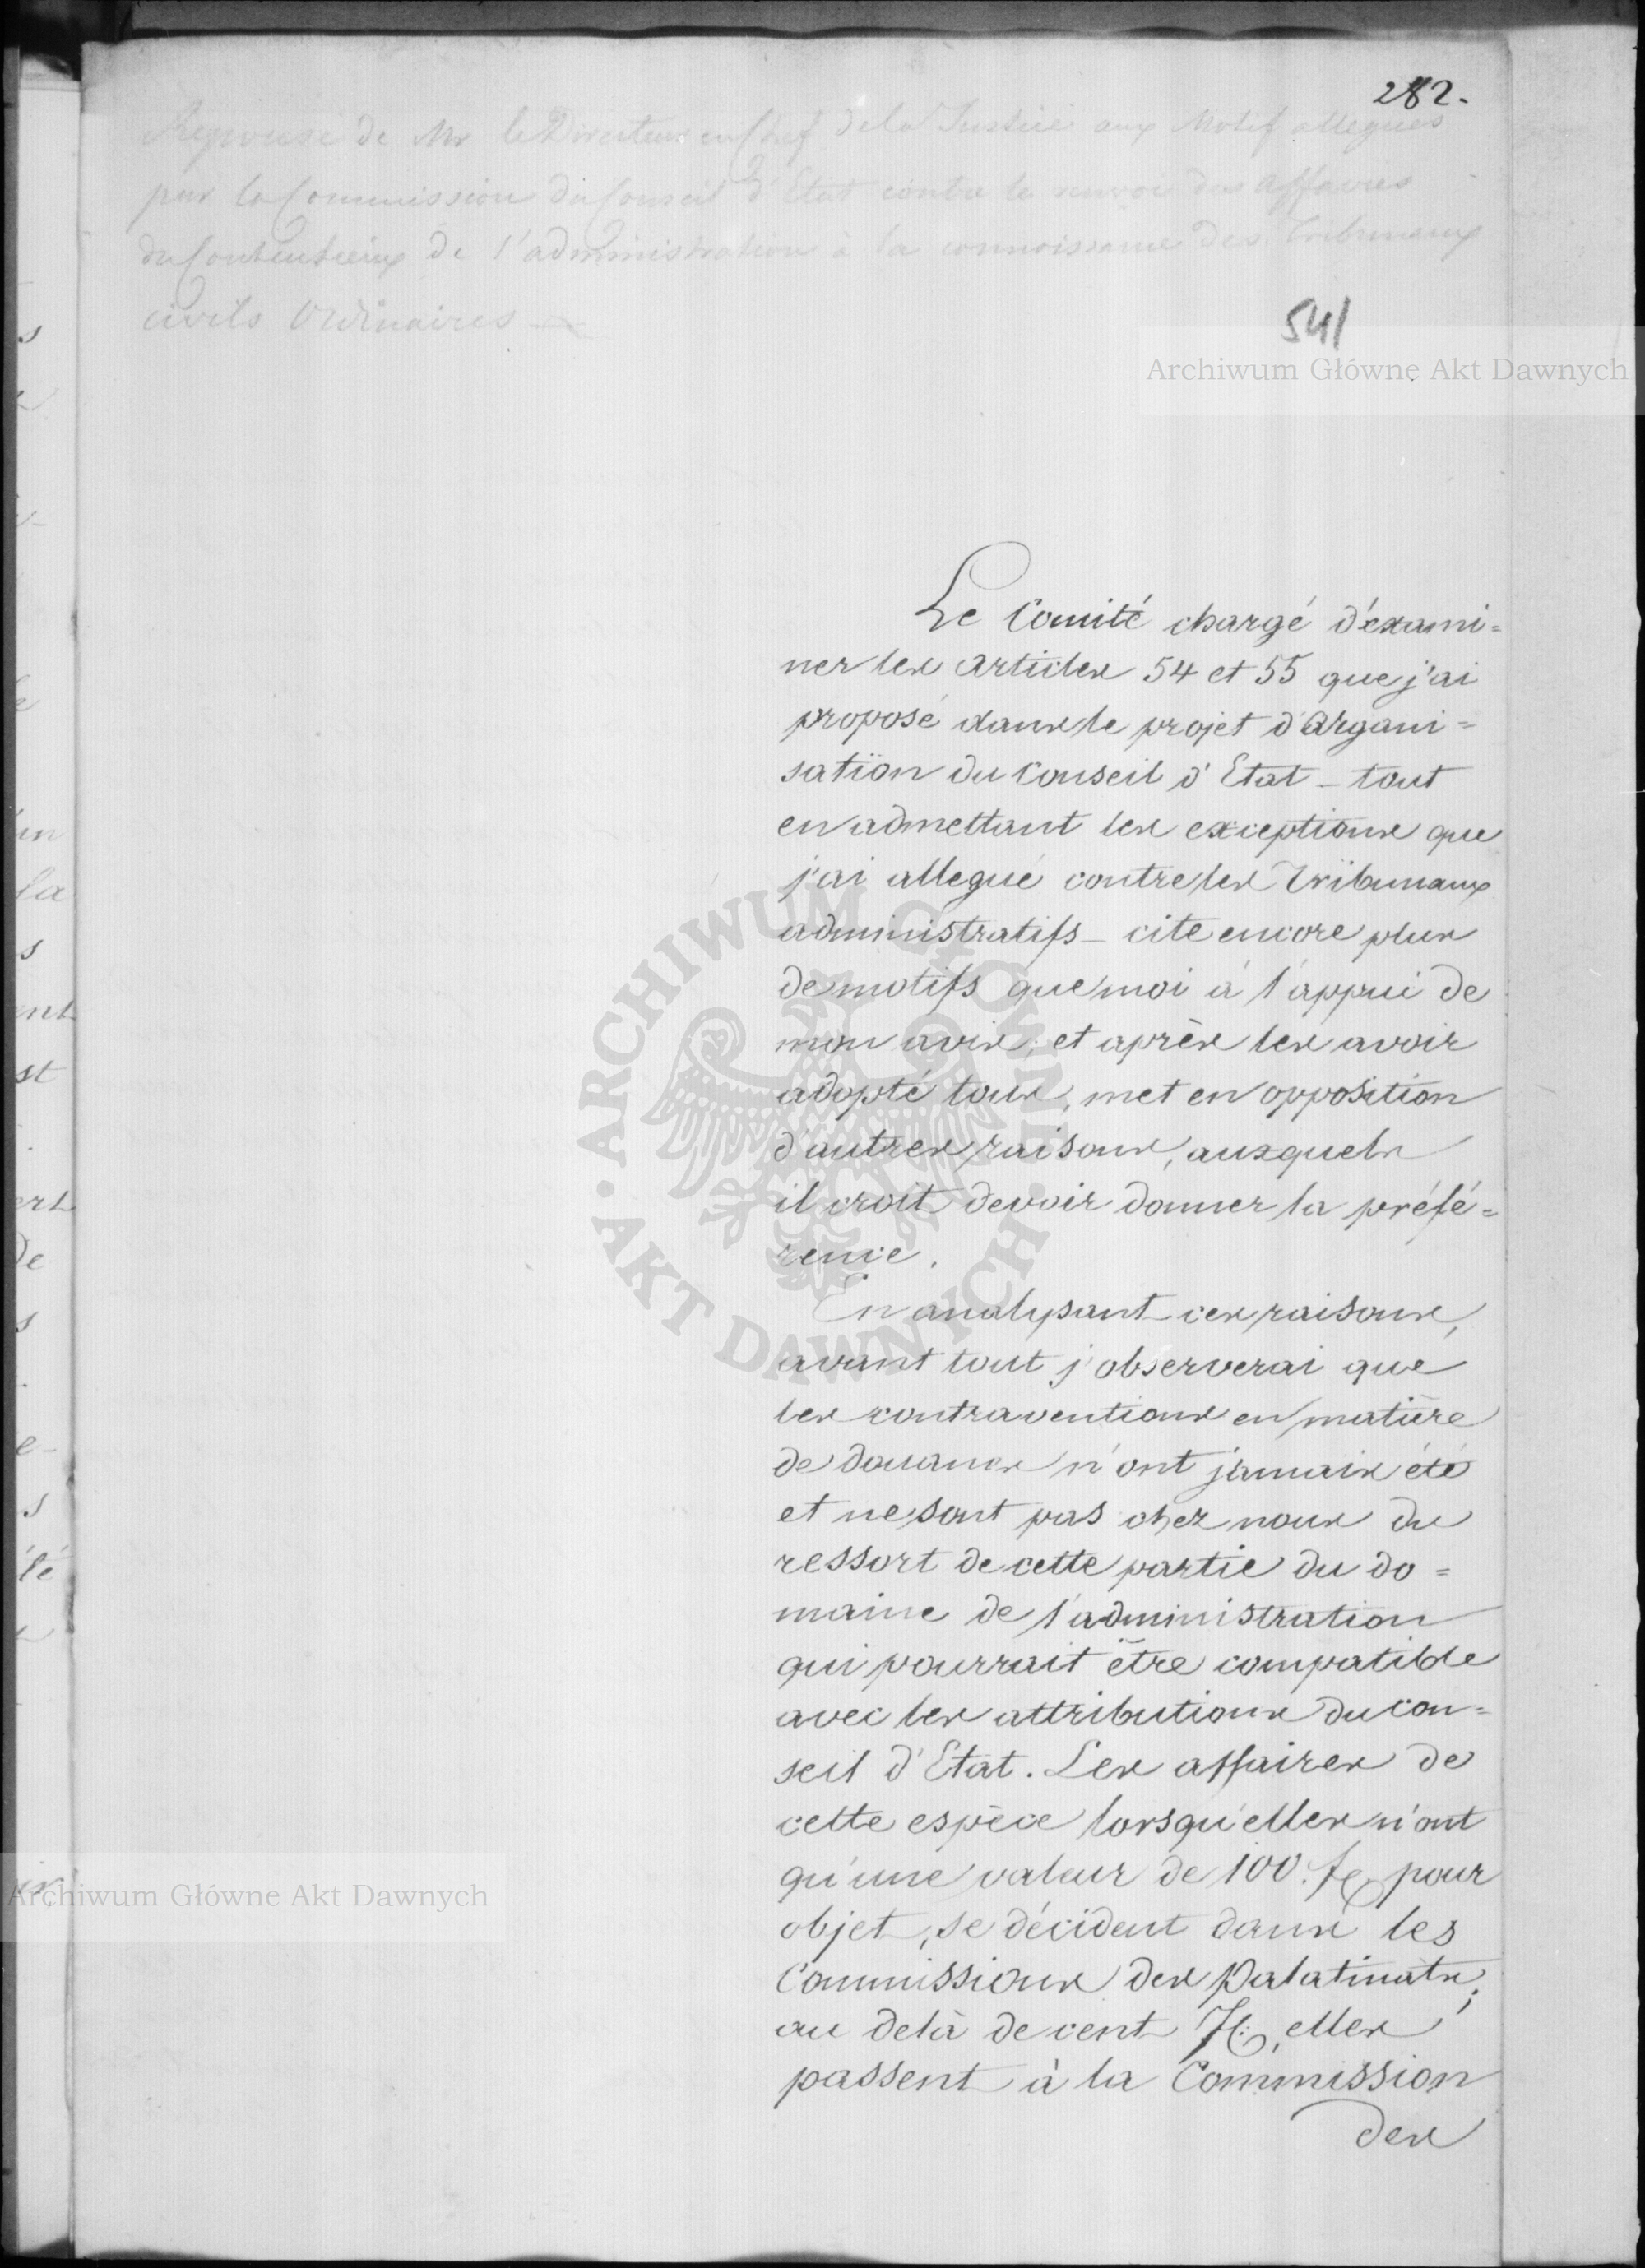 282.
Reponse de Mr le Directeur en Chef de la Justice aux Motif allegués
par la Commission du Conseil d'Etat contre le renvoi des Affaires
du Contentieux de l'administration à la connoissance des Tribunaux
civils Ordinaires —
541
Archiwum Główne Akt Dawnych
Le Comité chargé d'éxami=
ner les Articles 54 et 55 que j'ai
proposé dans le projet d'Organi=
sation du Conseil d'Etat – tout
en admettant les exceptions que
j'ai allegué contre les Tribunaux
administratifs – cite encore plus
de motifs que moi à l'appui de
mon avis, et après les avoir
adopté tous, met en opposition
d'autres raisons, auxquels
il croit devoir donner la préfé=
rence.
En analysant ces raisons,
avant tout j'observerai que
les contraventions en matière
de douanes n'ont jamais été
et ne sont pas chez nous du
ressort de cette partie du do=
maine de l'administration
qui pourrait être compatible
avec les attributions du Con=
seil d'Etat. Les affaires de
cette espèce lorsqu'elles n'ont
qu'une valeur de 100. fl. pour
objet, se décident dans les
Commissions des Palatinats;
au delà de cent fl. elles
passent à la Commission
des
ARCHIWUM GŁÓWNE · AKT DAWNYCH ·
Archiwum Główne Akt Dawnych